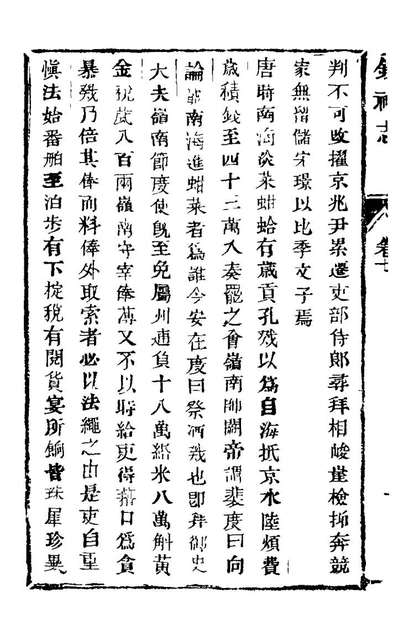 判不可改擢京兆尹累遷吏部侍郎尋拜相峻僅檢抑奔競
家無留儲宋璟以比季文子焉
唐時南海淡菜蚶蛤有歲貢孔戣以為自海抵京水陸煩費
歲積錢至四十三萬入奏罷之會嶺南帥闕帝謂裴度曰向
論 南海進蚶菜者為誰今安在度曰祭酒戣也即拜御史
大夫嶺南節度使旣至免屬州逋負十八萬緡米八萬斛黃
金税歲八百兩嶺南守宰俸薄又不以時給吏得藉口為貪
暴戣乃倍其俸而料俸外取索者必以法繩之由是吏自重
愼法始番舶至泊步有下椗稅有閱貨宴所餉皆珠犀珍異
錢神志
卷十